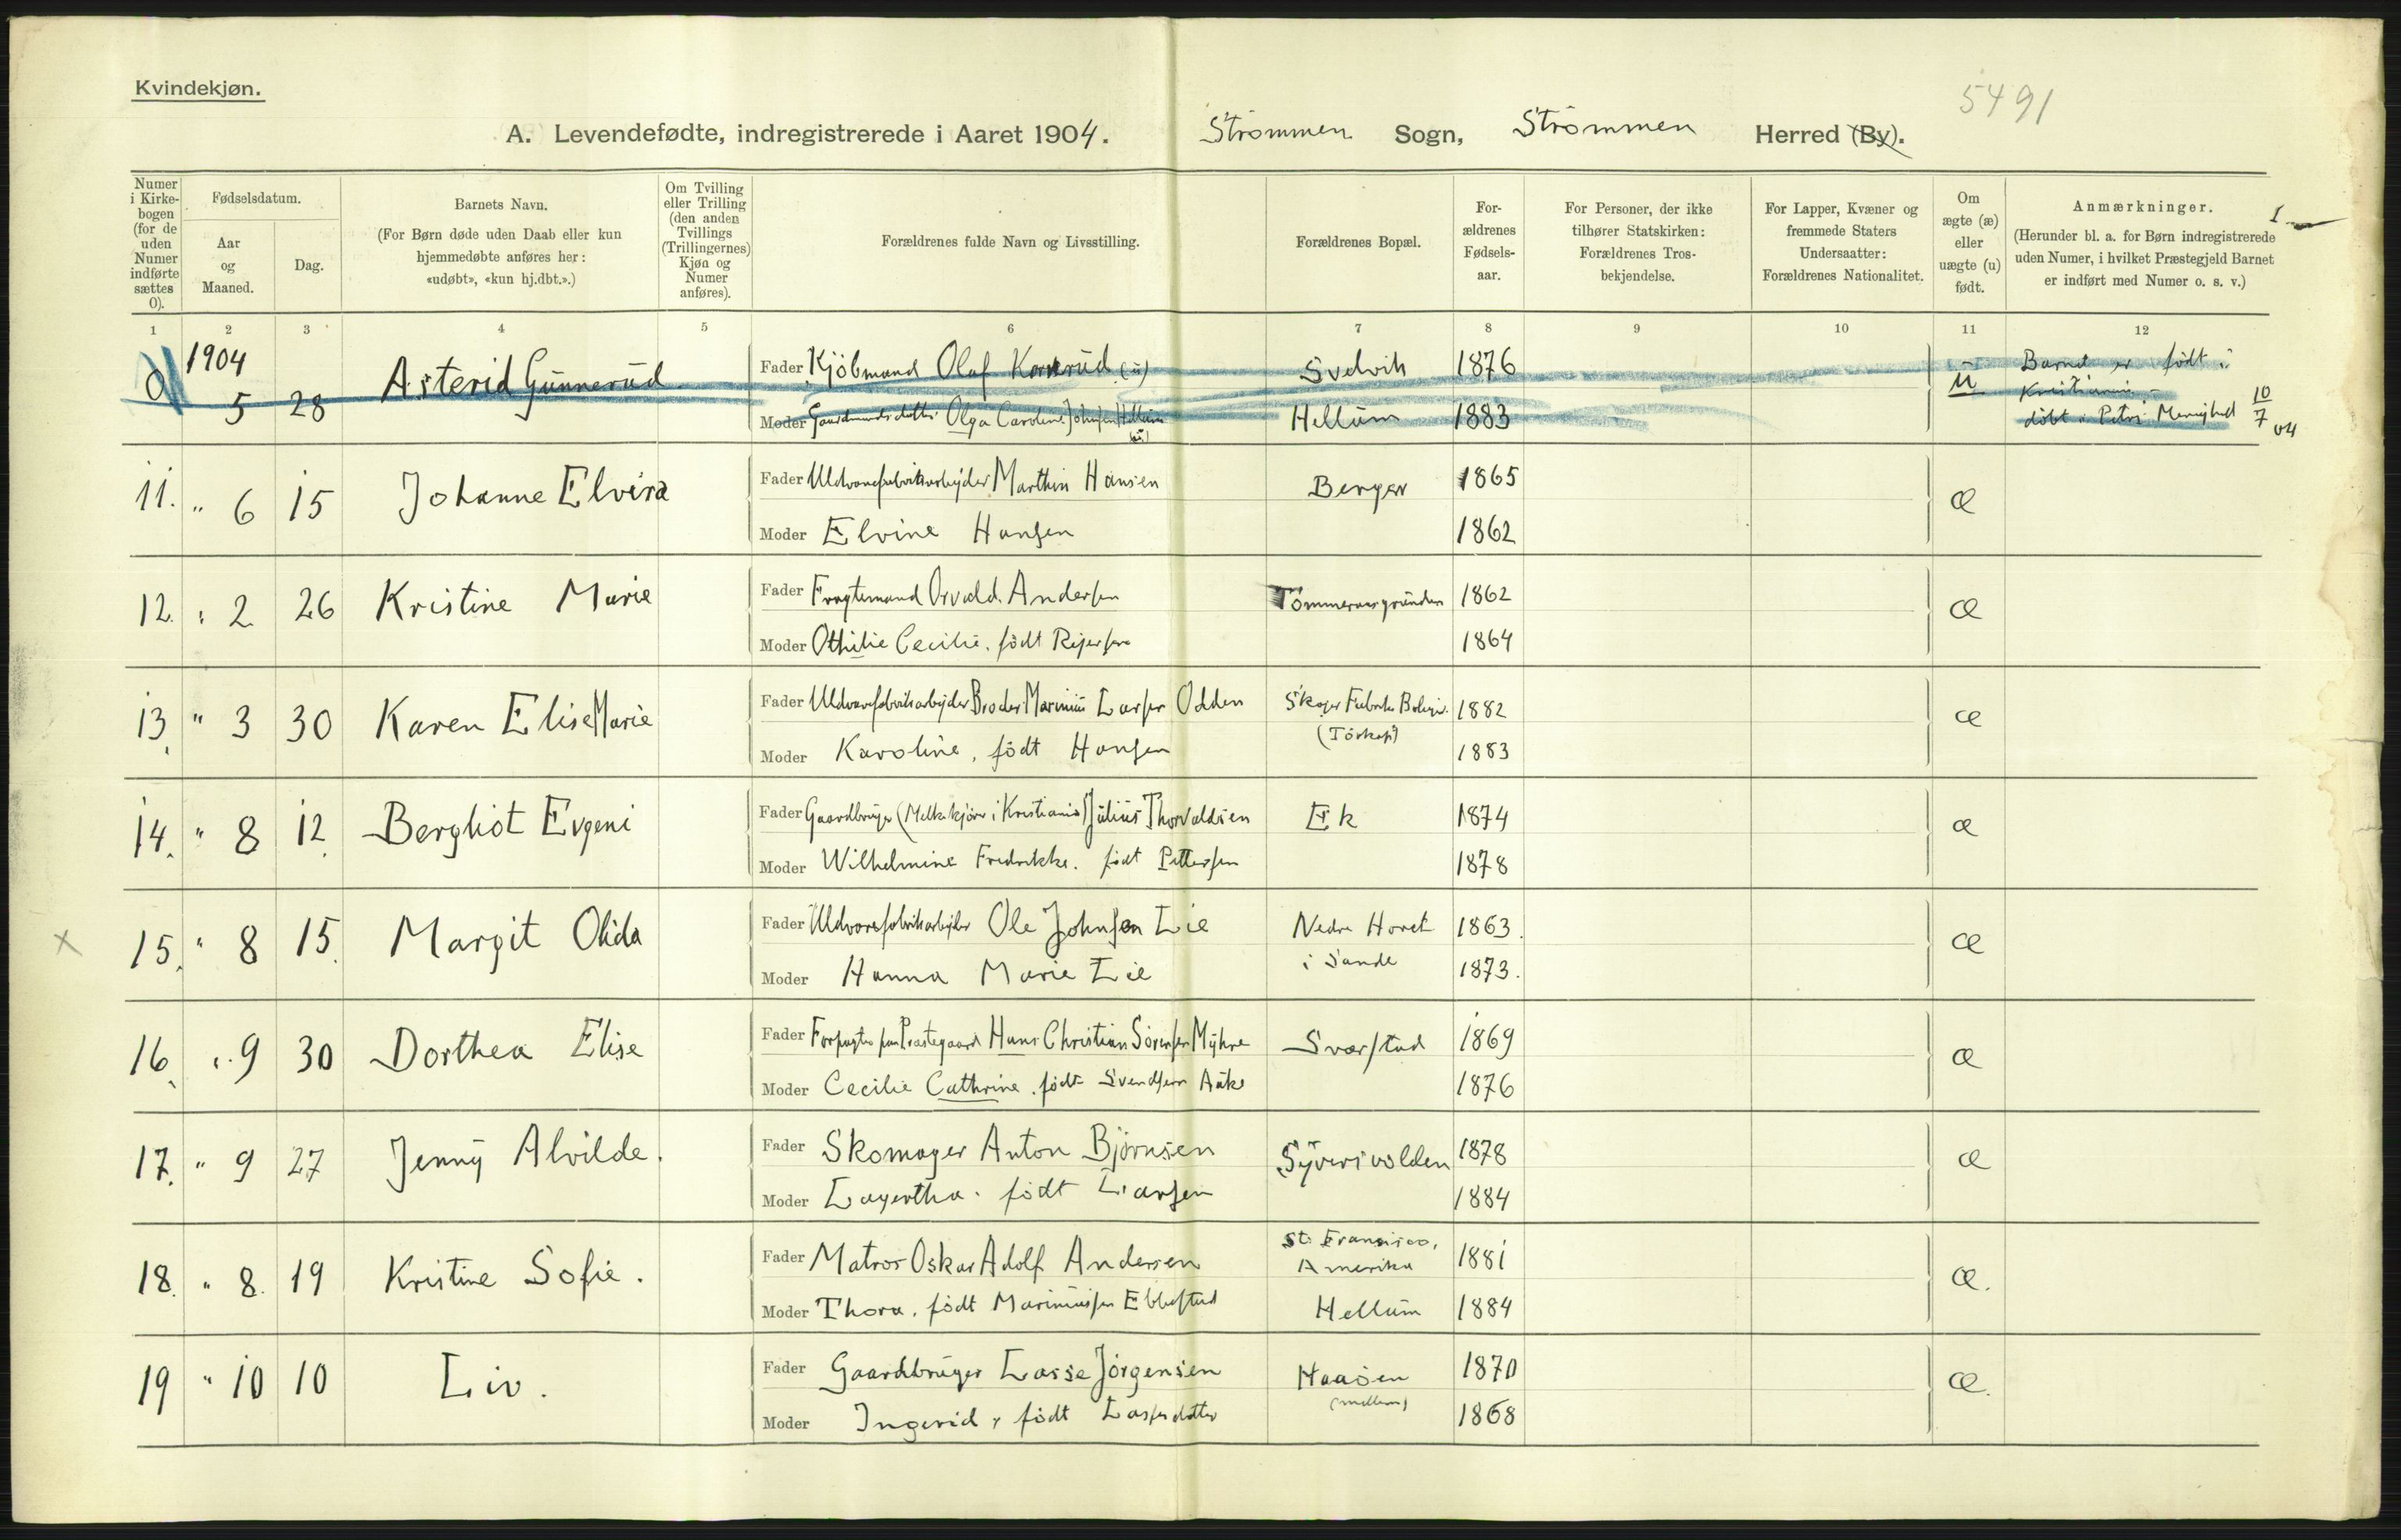 Kvindekjøn.
5491
A. Levendefødte, indregistrerede i Aaret 1904. Strömmen Sogn, Strömmen Herred (By).
Numer i Kirke-bogen (for de uden Numer indførte sættes 0).
Fødselsdatum.
Aar og Maaned.
Dag.
Barnets Navn.
(For Børn døde uden Daab eller kun hjemmedøbte anføres her: «udøbt», «kun hj.dbt.».)
Om Tvilling eller Trilling (den anden Tvillings (Trillingernes) Kjøn og Numer anføres).
Forældrenes fulde Navn og Livsstilling.
Forældrenes Bopæl.
For-ældrenes Fødsels-aar.
For Personer, der ikke tilhører Statskirken: Forældrenes Tros-bekjendelse.
For Lapper, Kvæner og fremmede Staters Undersaatter: Forældrenes Nationalitet.
Om ægte (æ) eller uægte (u) født.
Anmærkninger.
(Herunder bl. a. for Børn indregistrerede uden Numer, i hvilket Præstegjeld Barnet er indført med Numer o. s. v.)
1 2 3 4 5 6 7 8 9 10 11 12
0 1904 5 28 Asterid Gunnerud Fader Kjöbmand Olaf (u) Svelvik 1876 u Barnet er født i Kristiania
Moder Olga Caroline Johnsen Hellum (u) Hellum 1883 döbt i Petri Menighed 10/7 04
11. " 6 15 Johanne Elvira Fader Uldvarefabrikarbeyder Marthin Hansen Berger 1865 æ
Moder Elvine Hansen 1862
12. " 2 26 Kristine Marie Fader Fragtemand Orvald. Andersen 1862 æ
Moder Othilie Cecilie. födt Rejersen 1864
13. " 3 30 Karen Elise Marie Fader Uldvarefabrikarbeyder Broder Marinius Larsen Odden Skoger Fabriks 1882 æ
Moder Karoline, födt Hansen 1883
14. " 8 12. Bergliot Evgeni Fader Gaardbruger (Melkekjörer i Kristiania) Julius Thorvaldsen Ek 1874 æ
Moder Wilhelmine Fredrikke. födt Pettersen 1878
x 15. " 8 15. Margit Olida Fader Uldvarefabrikarbeyder Ole Johnsen Lie Nedre Horet i Sande 1863. æ
Moder Hanna Marie Lie 1873.
16. " 9 30 Dorthea Elise Fader Forpagter paa Præstegaard Hans Christian Sörensen Myhre Sværstad 1869 æ
Moder Cecilie Cathrine. födt Svendsen Aake 1876
17. " 9 27 Jenny Alvilde. Fader Skomager Anton Björnsen Syverivolden 1878 æ
Moder Lagertha. födt Larsen 1884
18. " 8. 19 Kristine Sofie. Fader Matros Oskar Adolf Andersen St. Fransisco, Amerika 1881 æ.
Moder Thora. födt Marinussen Ebbestad Hellum 1884
19 " 10 10 Liv. Fader Gaardbruger Lasse Jörgensen Haasen (mellem) 1870 æ.
Moder Ingerid, födt Lassesdatter 1868